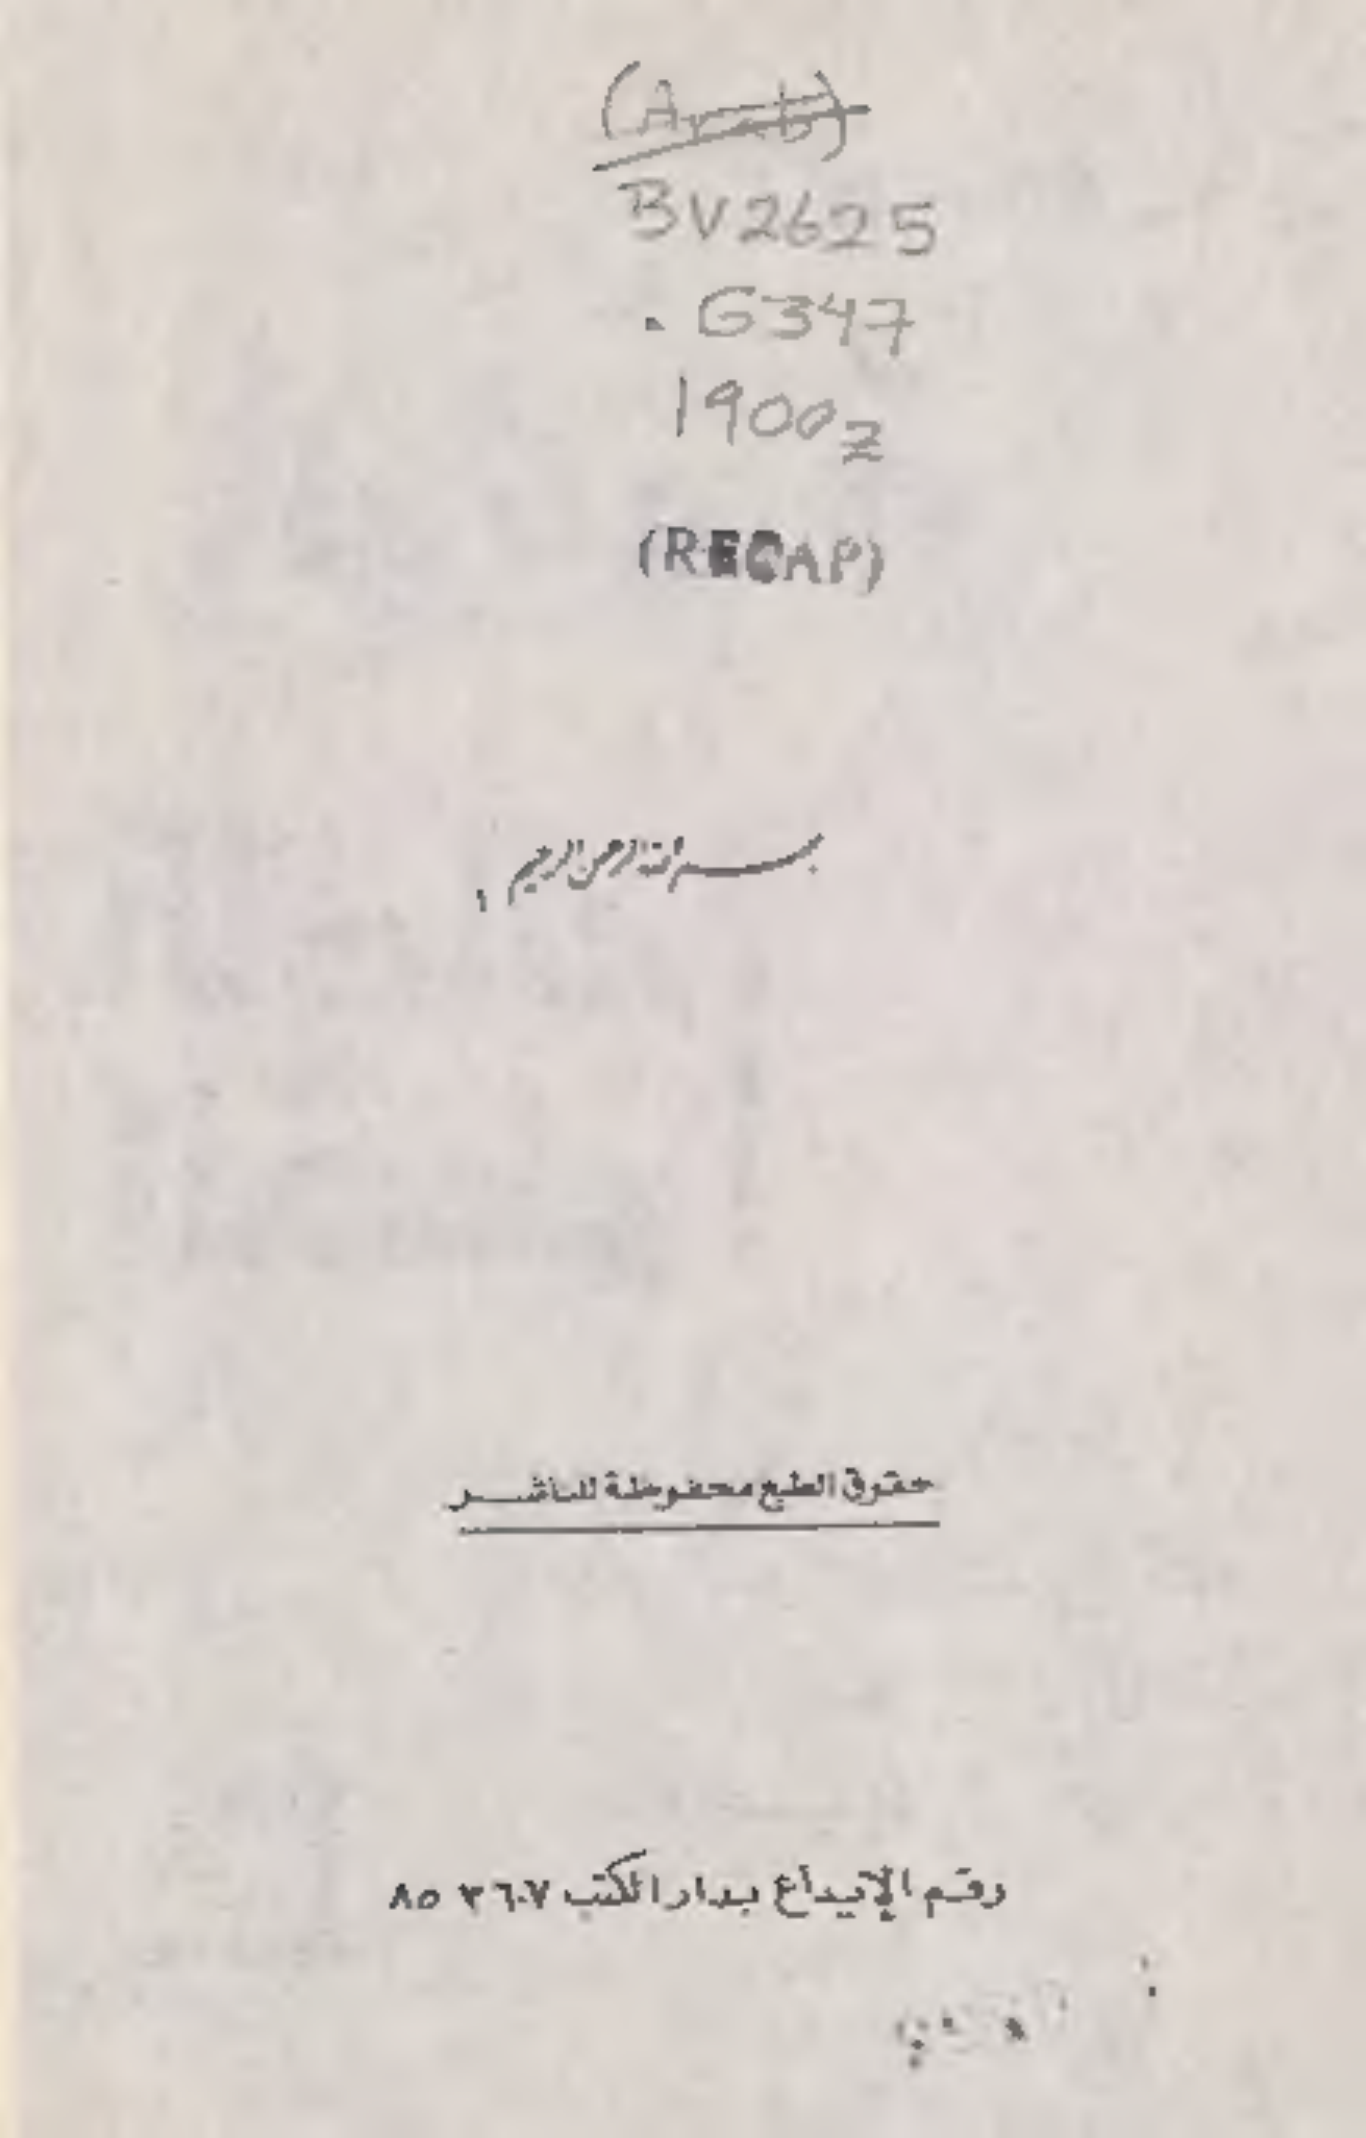 (Arab)
BV2625
.G347
1900z
(RECAP)
بسم الله الرحمن الرحيم
حقوق الطبع محفوظة للناشر
رقم الإيداع بدار الكتب ٣٦٠٧ ٨٥